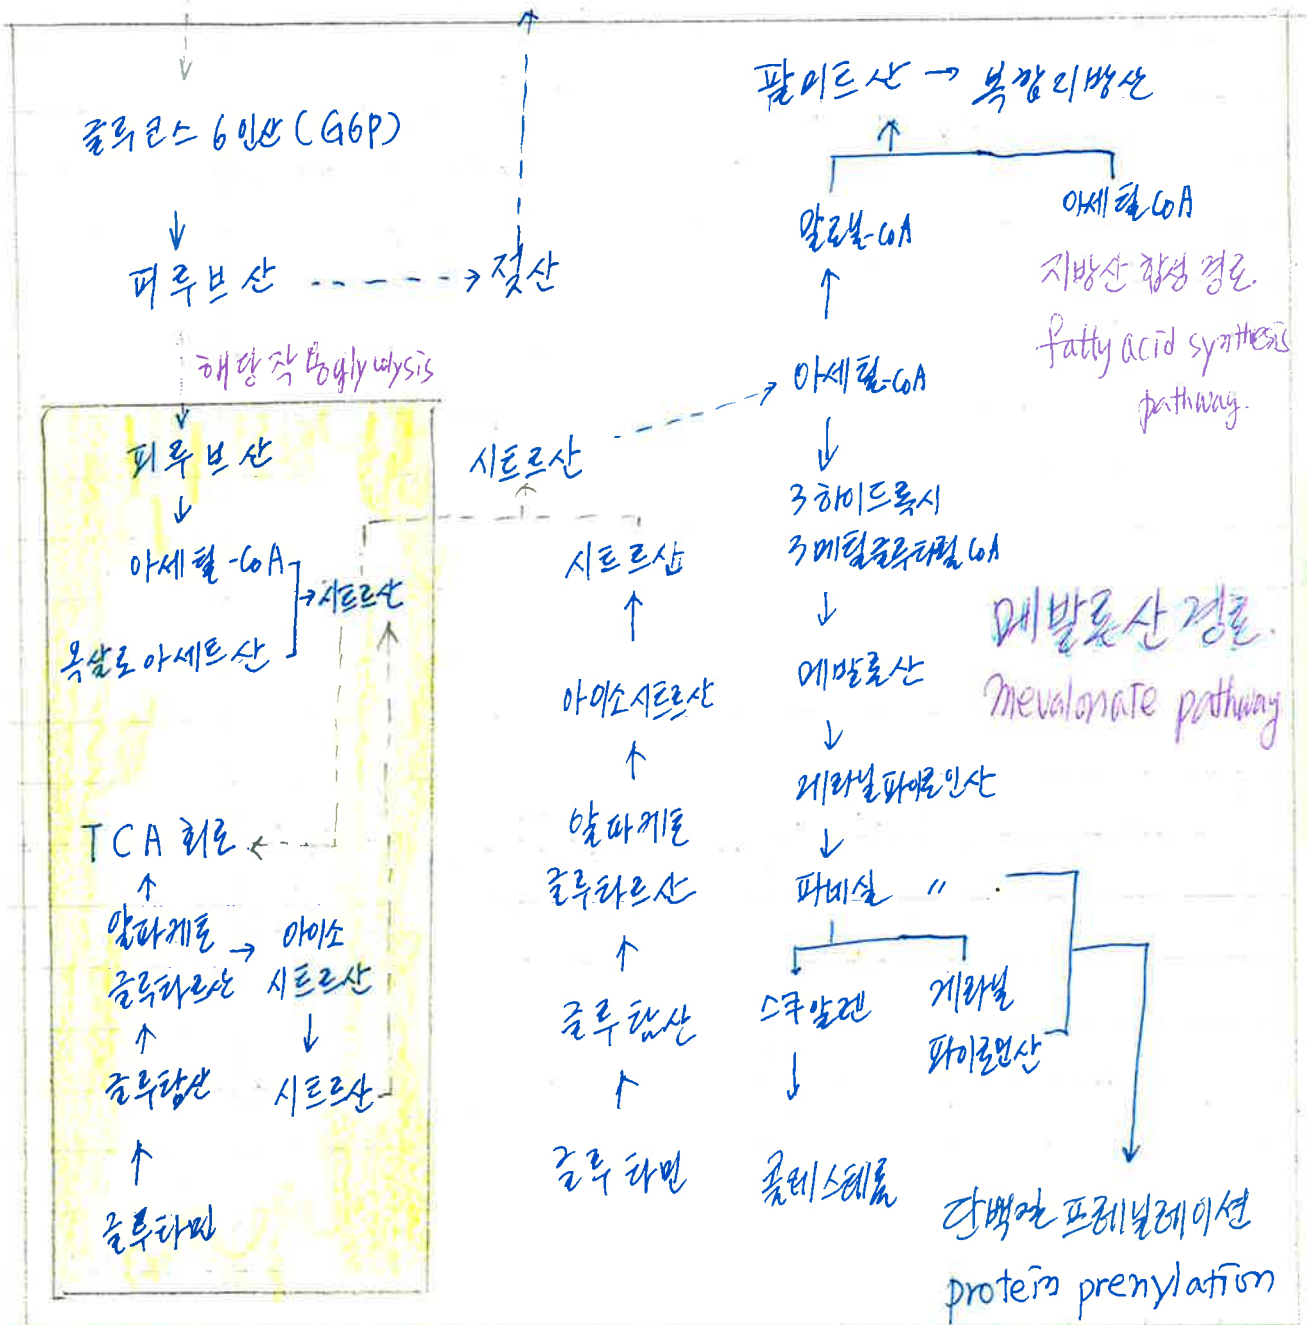 글루코스 6인산(G6P)
피루브산
젖산
해당작용glycolysis
피루브산
아세틸-CoA
옥살로아세트산
시트르산
TCA 회로
알파케토
글루타르산
아이소
시트르산
글루탐산
시트르산
글루타민
시트르산
시트르산
아이소시트르산
알파케토
글루타르산
글루탐산
글루타민
팔미트산 → 복합지방산
말로닐-CoA
아세틸CoA
지방산 합성 경로.
fatty acid synthesis
pathway.
아세틸-CoA
3하이드록시
3메틸글루타릴CoA
메발론산
메발론산 경로.
mevalonate pathway
게라닐파이로인산
파네실 〃
스쿠알렌
게라닐
파이로인산
콜레스테롤
단백질 프레닐레이션
protein prenylation